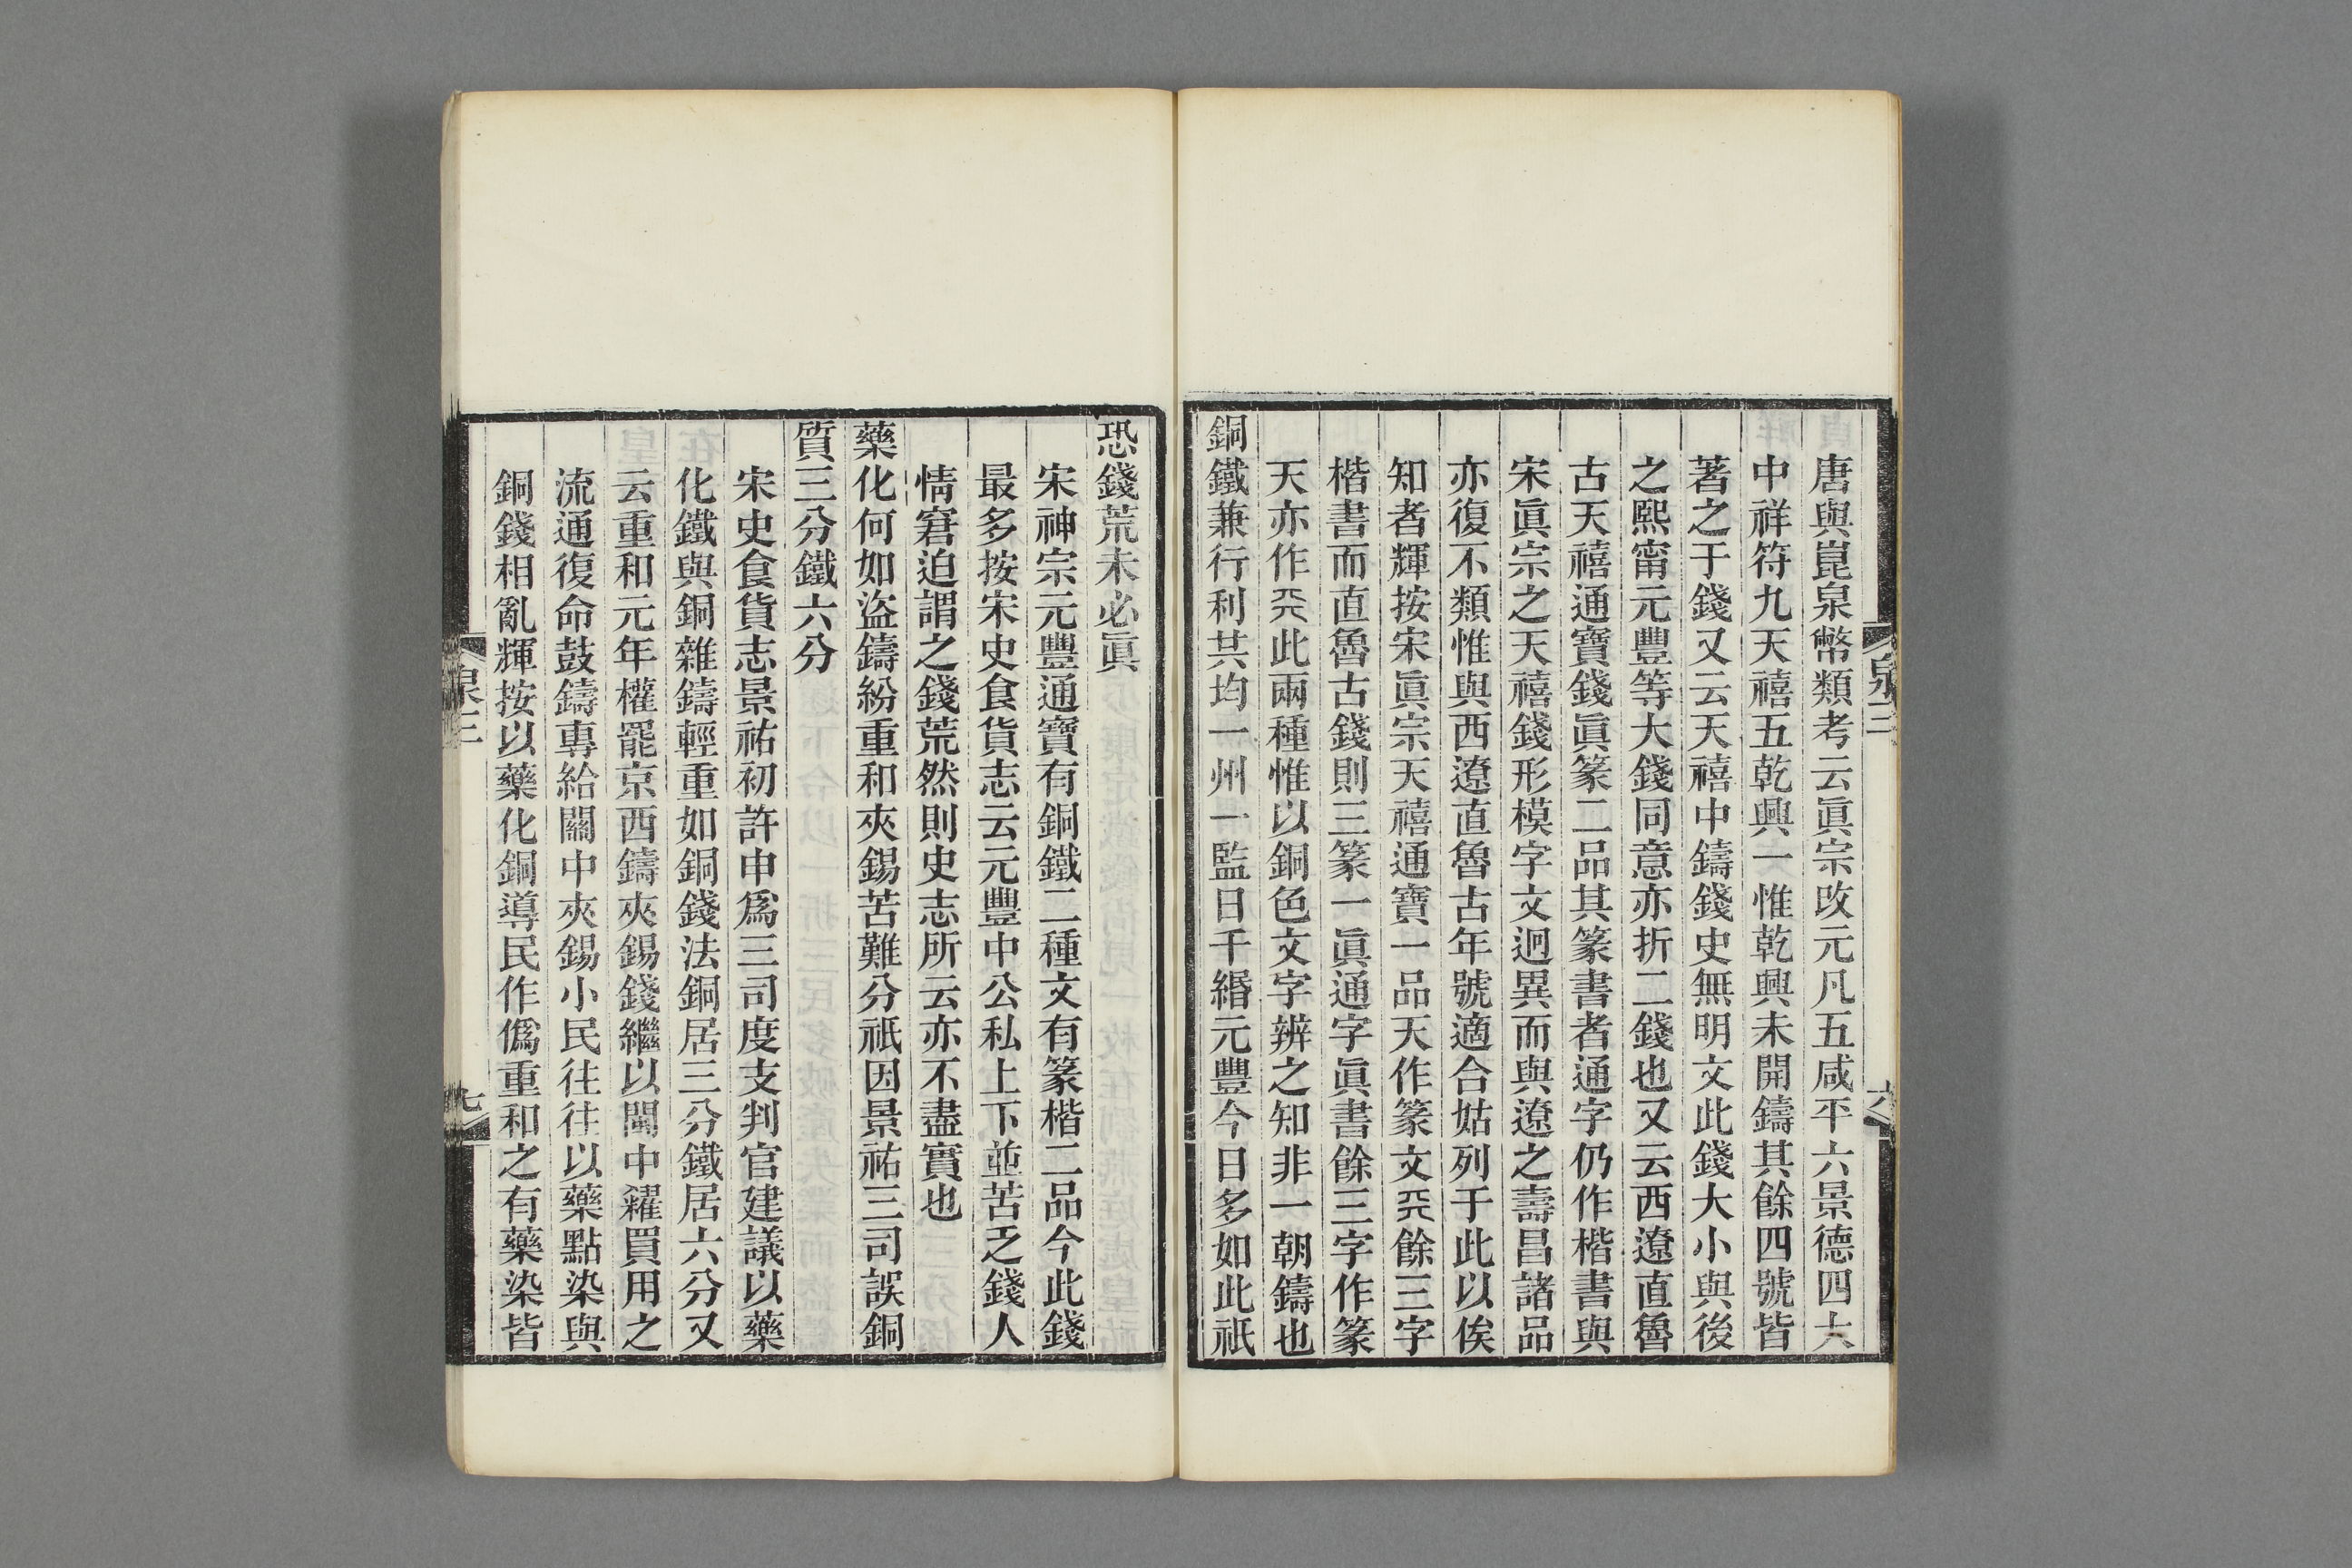 唐與崑泉幣類考云眞宗改元凡五咸平六景德四大
中祥符九天禧五乾興一惟乾興未開鑄其餘四號皆
著之于錢又云天禧中鑄錢史無明文此錢大小與後
之熙甯元豐等大錢同意亦折二錢也又云西遼直魯
古天禧通寶錢眞篆二品其篆書者通字仍作楷書與
宋眞宗之天禧錢形模字文迥異而與遼之壽昌諸品
亦復不類惟與西遼直魯古年號適合姑列于此以俟
知者輝按宋眞宗天禧通寶一品天作篆文兲餘三字
楷書而直魯古錢則三篆一眞通字眞書餘三字作篆
天亦作兲此兩種惟以銅色文字辨之知非一朝鑄也
銅鐵兼行利共均一州一監日千緡元豐今日多如此祇
泉三
六
恐錢荒未必眞
宋神宗元豐通寶有銅鐵二種文有篆楷二品今此錢
最多按宋史食貨志云元豐中公私上下並苦乏錢人
情窘迫謂之錢荒然則史志所云亦不盡實也
藥化何如盜鑄紛重和夾錫苦難分祇因景祐三司誤銅
質三分鐵六分
宋史食貨志景祐初許申爲三司度支判官建議以藥
化鐵與銅雜鑄輕重如銅錢法銅居三分鐵居六分又
云重和元年權罷京西鑄夾錫錢繼以關中糴買用之
流通復命鼓鑄專給關中夾錫小民往往以藥點染與
銅錢相亂輝按以藥化銅導民作僞重和之有藥染皆
泉三
七